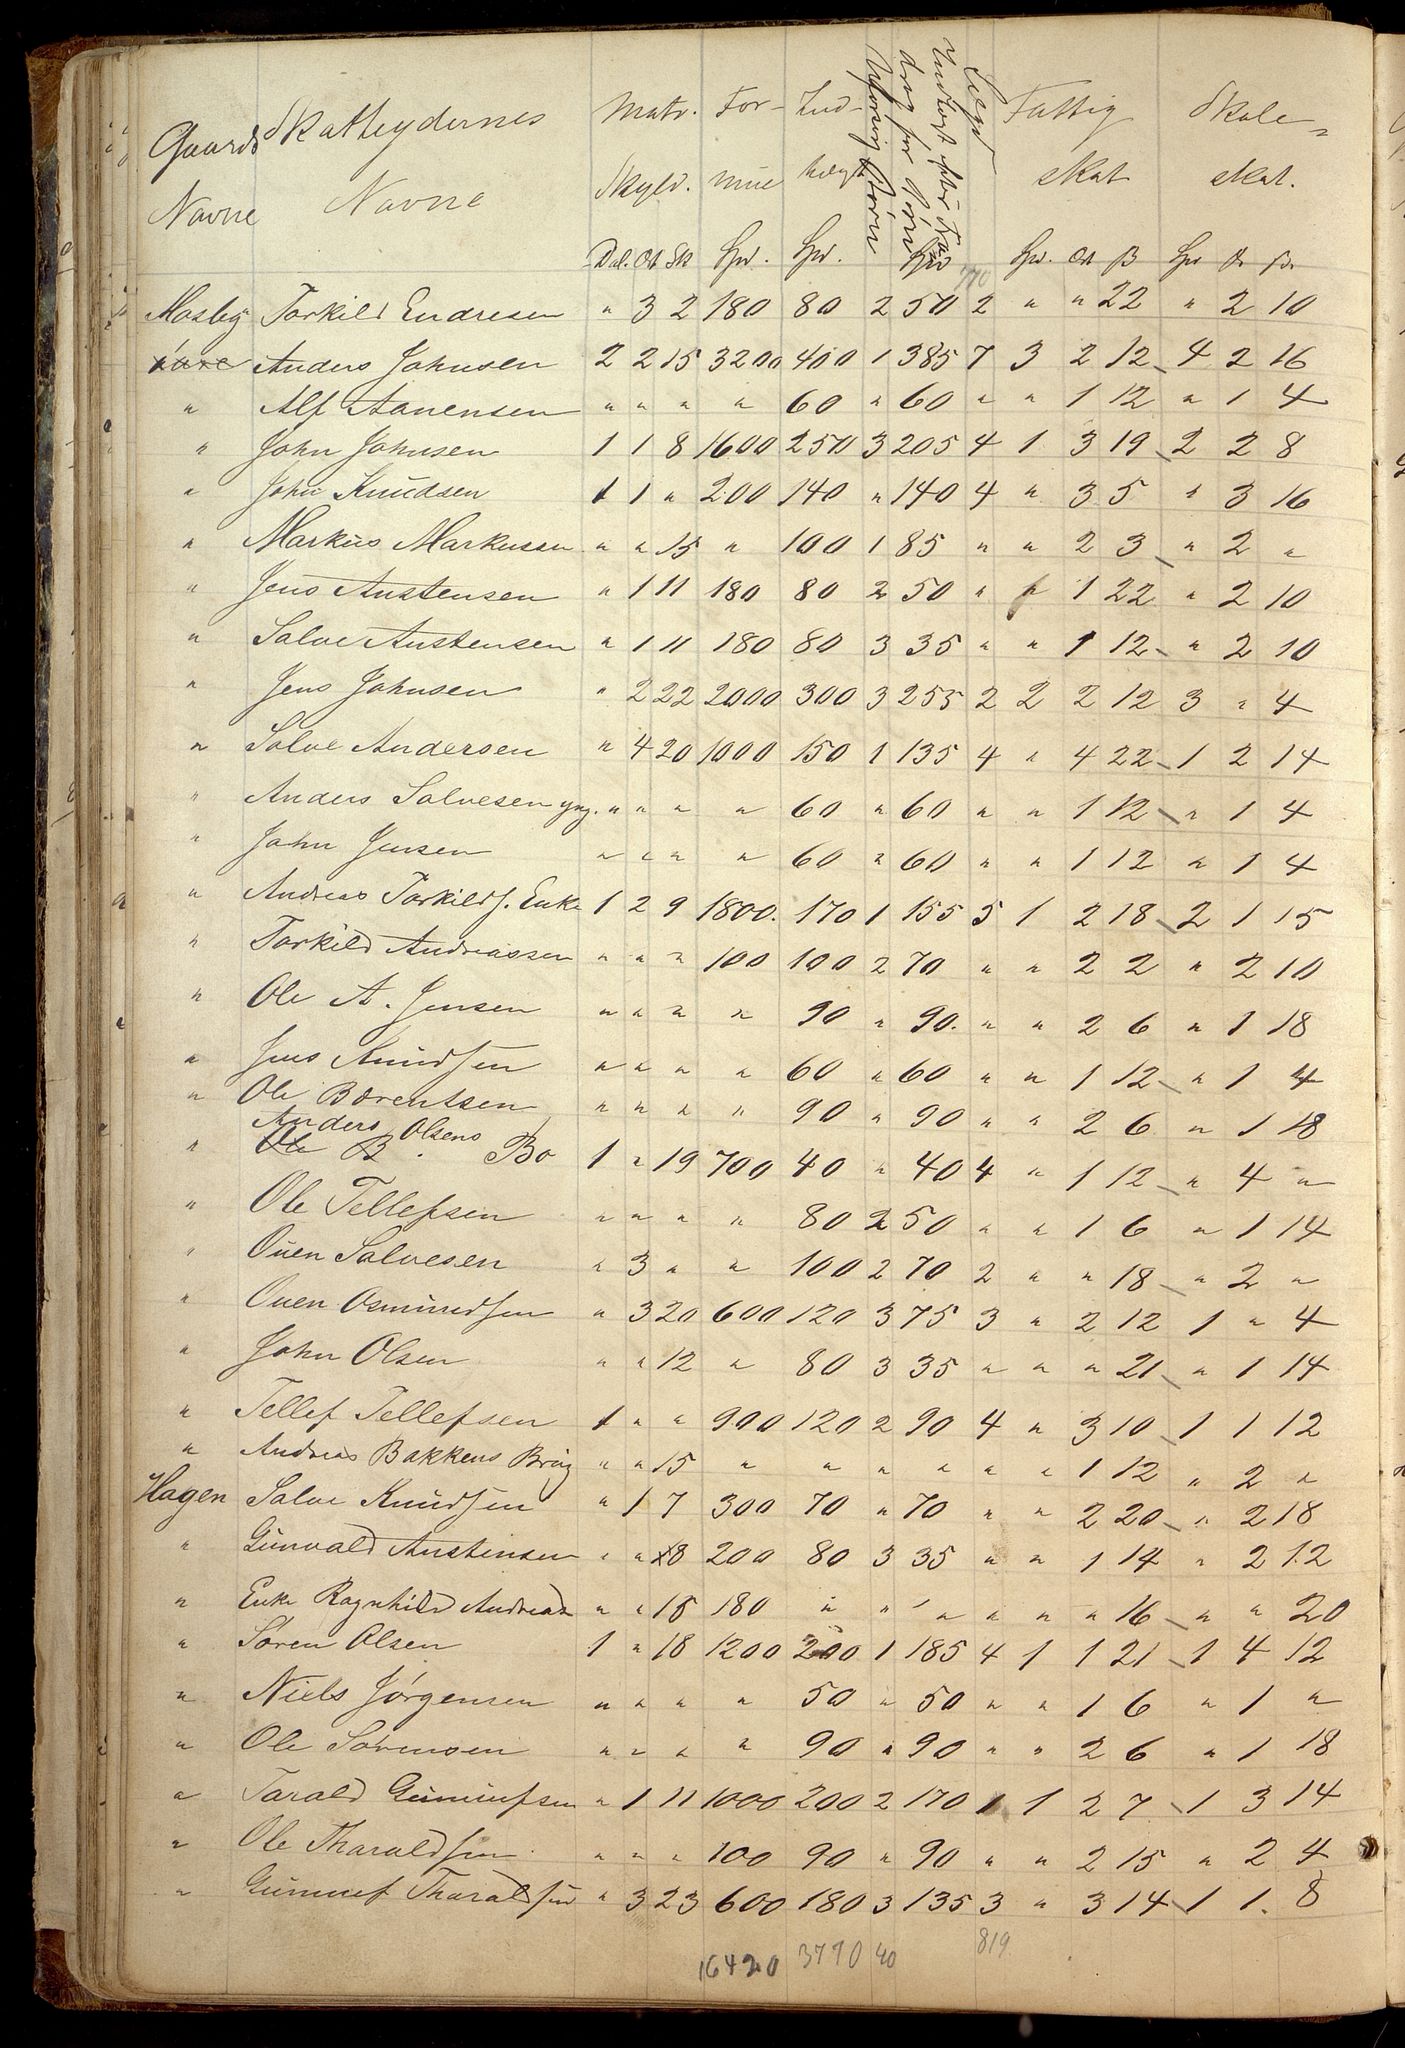 Gaards Skatteydernes Matr. For- Ind- Uforsørg Børn Indtægt efter Fradrag for Børn Fattig Skole-
Navne Navne Skyld. mue tægt skat skat.
Dal. Ort Sk Spd. Spd. Spd Spd. Ort β Spd
770
Mosby Torkild Endresen " 3 2 180 80 2 50 2 " " 22 " 2 10
Anders Johnsen 2 2 15 3200 400 1 385 7 3 2 12 4 2 16
" Alf Aanensen " " " " 60 " 60 " " 1 12 " 1 4
" John Johnsen 1 1 8 1600 250 3 205 4 1 3 19 2 2 8
" John Knudsen 1 1 " 200 140 " 140 4 " 3 5 " 3 16
" Markus Markussen " " 15 " 100 1 85 " " 2 3 " 2 "
" Jens Austensen " 1 11 180 80 2 50 " " 1 22 " 2 10
" Salve Austensen " 1 11 180 80 3 35 " " 1 12 " 2 10
" Jens Johnsen " 2 22 2000 300 3 255 2 2 2 12 3 " 4
" Salve Andersen " 4 20 1000 150 1 135 4 " 4 22 1 2 14
" Anders Salvesen yng. " " " " 60 " 60 " " 1 12 " 1 4
" John Jensen " " " " 60 " 60 " " 1 12 " 1 4
" Andreas Torkilds. Enke 1 2 9 1800. 170 1 155 5 1 2 18 2 1 15
" Torkild Andreassen " " " 100 100 2 70 " " 2 2 " 2 10
" Ole A. Jensen " " " " 90 " 90. " " 2 6 " 1 18
" Jens Knudsen " " " " 60 " 60 " " 1 12 " 1 4
" Ole Børentsen " " " " 90 " 90 " " 2 6 " 1 18
Anders Olsens
" Ole B. Bo 1 " 19 700 40 " 40 4 " 1 12 " 4 "
" Ole Tellefsen " " " " 80 2 50 " " 1 6 " 1 14
" Ouen Salvesen " 3 " " 100 2 70 2 " " 18 " 2 "
" Ouen Osmundsen " 3 20 600 120 3 75 3 " 2 12 1 " 4
" John Olsen " " 12 " 80 3 35 " " " 21 " 1 14
" Tellef Tellefsen 1 " " 900 120 2 90 4 " 3 10 1 1 12
" Andreas Bakkens Brug " " 15 " " " " " " 1 12 " 2 "
Hagen Salve Knudsen " 1 7 300 70 " 70 " " 2 20 " 2 18
" Gunvald Austensen " " 18 200 80 3 35 " " 1 14 " 2 12
" Enke Ragnhild Andreas " " 15 180 " " " " " " 16 " " 20
" Søren Olsen 1 " 18 1200 200 1 185 4 1 1 21 1 4 12
" Niels Jørgensen " " " " 50 " 50 " " 1 6 " 1 "
" Ole Sørensen " " " " 90 " 90 " " 2 6 " 1 18
" Tarald Gunnufsen " 1 11 1000 200 2 170 1 1 2 7 1 3 14
" Ole Tharaldsen " " " 100 90 " 90 " " 2 15 " 2 4
" Gunnuf Tharaldsen " 3 23 600 180 3 135 3 " 3 14 1 1. 8
16420 3770 40 819.